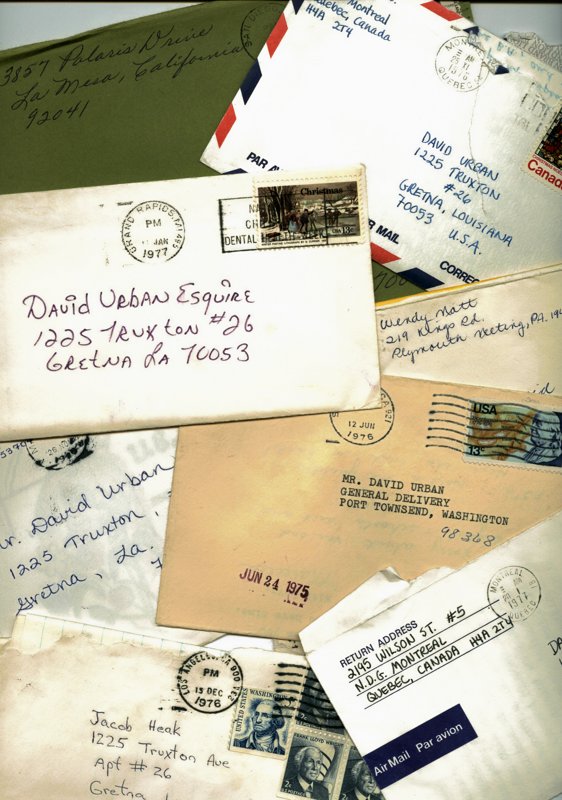 3857 Polaris Drive
La Mesa, California
92041
Montreal
Quebec, Canada
H4A 2T4
MONTREAL
1976
QUEBEC
DAVID URBAN
1225 TRUXTON
#26
GRETNA, LOUISIANA
70053
U.S.A.
PAR AV
R MAIL
CORREO
Canada
GRAND RAPIDS, MI 495
PM
JAN
1977
DENTAL
Christmas
USA 13c
DAVID URBAN ESQUIRE
1225 TRUXTON #26
GRETNA LA 70053
Wendy Matt
219 Kings Rd.
Plymouth Meeting, PA. 194
12 JUN
1976
USA
13c
MR. DAVID URBAN
GENERAL DELIVERY
PORT TOWNSEND, WASHINGTON
98368
JUN 24 1975
r. David Urban
1225 Truxton,
Gretna, La.
MONTREAL
1977
QUEBEC
RETURN ADDRESS
2195 WILSON ST. #5
N.D.G. MONTREAL
QUEBEC, CANADA H4A 2T4
Air Mail Par avion
LOS ANGELES, CA 900
PM
13 DEC
1976
UNITED STATES
WASHINGTON
5c
2c
FRANK LLOYD WRIGHT
2c
Jacob Heak
1225 Truxton Ave
Apt # 26
Gretna